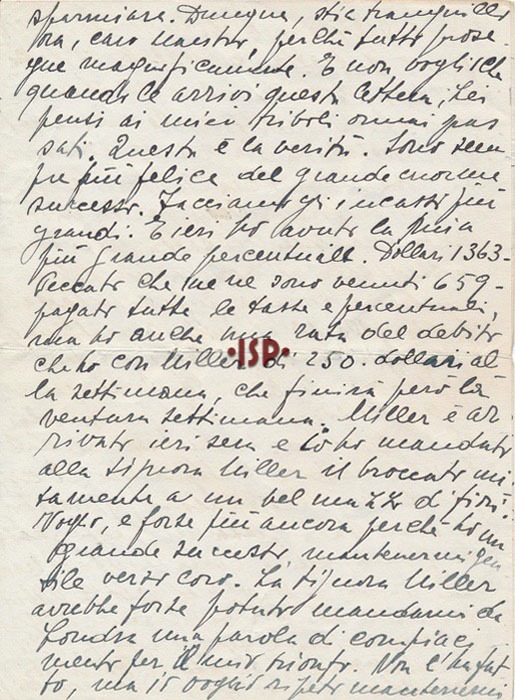 sparmiare. Dunque, stia tranquillo
ora, caro Maestro, perché tutto prose
gue magnificamente. E non voglio che
quando Le arrivi questa lettera, Lei
pensi ai miei triboli ormai pas
sati. Questa è la verità. Sono sem
pre più felice del grande enorme
successo. Facciamo gli incassi più
grandi. E ieri ho avuto la mia
più grande percentuale. Dollari 1363-
Peccato che me ne sono venuti 659-
pagato tutte le tasse e percentuali,
ma ho anche una rata del debito
che ho con Miller di 250. dollari al
la settimana, che finirà però la
ventura settimana. Miller è ar
rivato ieri sera e io ho mandato
alla Signora Miller il broccato uni
tamente a un bel mazzo di fiori.
Voglio, e forse più ancora perché ho un
grande successo mantenermi gen
tile verso loro. La Signora Miller
avrebbe forse potuto mandarmi da
Londra una parola di compiaci
mento per il mio trionfo. Non l'ha fat
to, ma io voglio mantenermi
·ISP·